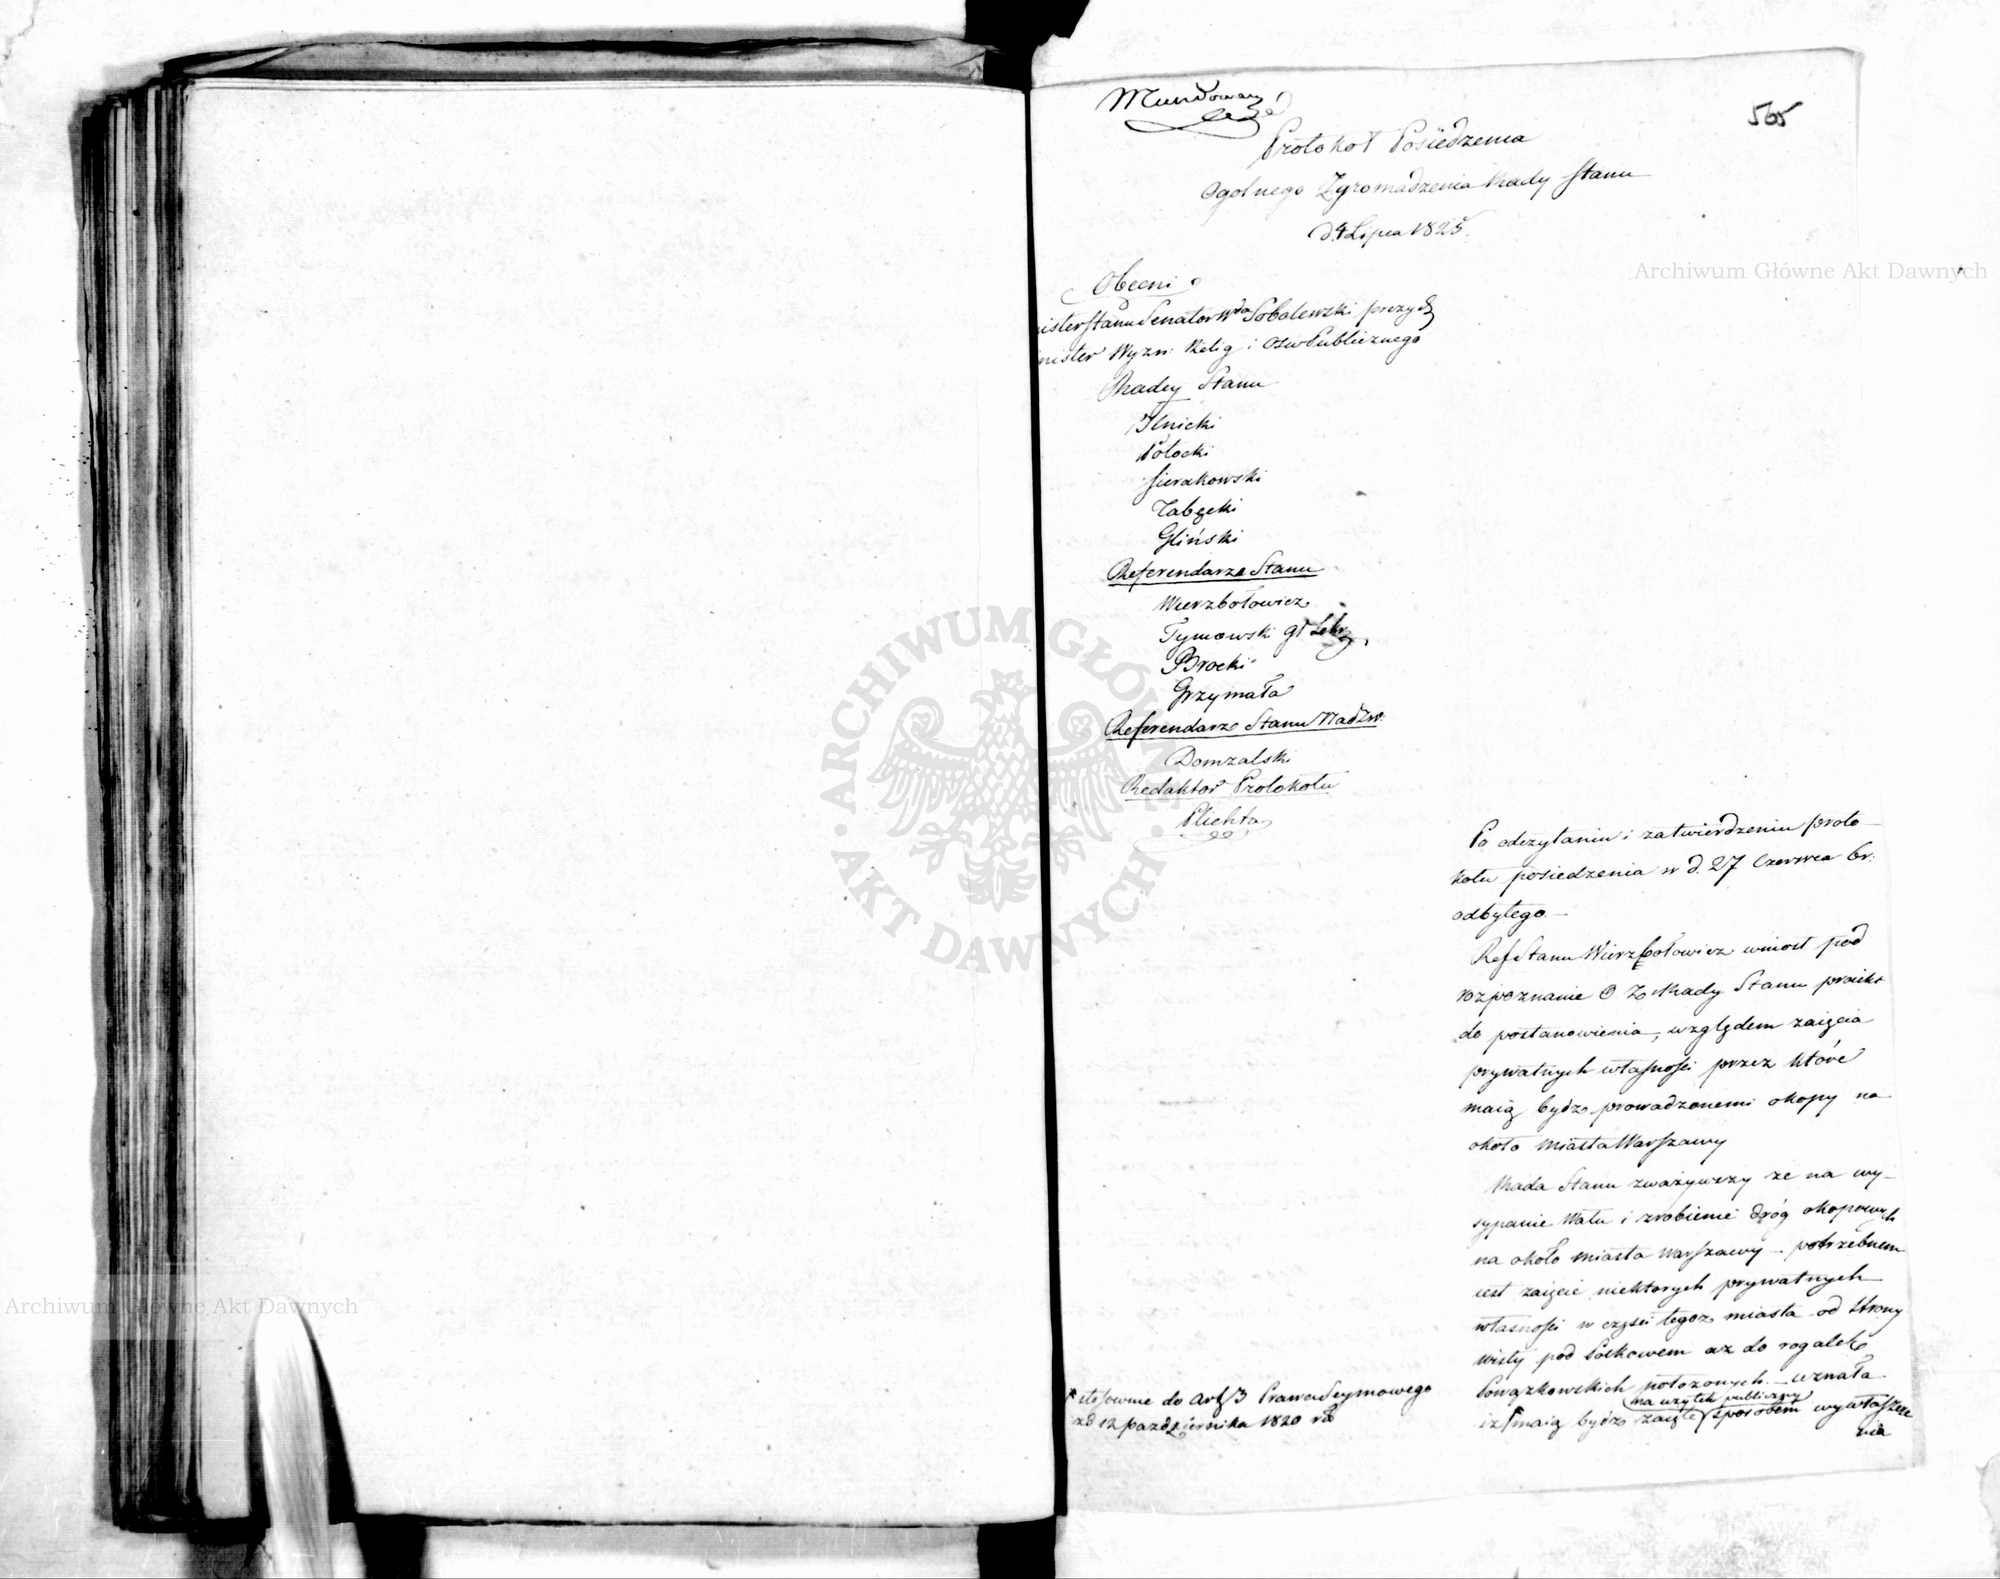 Mundowany
565
Protokoł Posiedzenia
Ogólnego Zgromadzenia Rady Stanu
d. 4 Lipca 1825.
Archiwum Główne Akt Dawnych
Obecni
nister Stanu Senator Wda Sobolewski prezyd
nister Wyzn: Relig: i Osw Publicznego
Radcy Stanu
Ilnicki
Potocki
Sierakowski
Zabęcki
Gliński
Referendarze Stanu
Wierzbołowicz
Tymowski
Brocki
Grzymała
Referendarz Stanu Nadzw:
Domzalski
Redaktor Protokołu
Plichta
ARCHIWUM GŁÓWNE AKT DAWNYCH
Po odczytaniu i zatwierdzeniu proto-
kołu posiedzenia w d. 27 Czerwca br:
odbytego.—
Ref Stanu Wierzbołowicz wniosł pod
rozpoznanie O Z Rady Stanu proiekt
do postanowienia, względem zaięcia
prywatnych własności przez które
maią bydz prowadzonemi okopy na
około miasta Warszawy
Rada Stanu zważywszy ze na wy-
sypanie Wału i zrobienie dróg okopowych
na około miasta Warszawy — potrzebnem
iest zaięcie niektorych prywatnych
własności w części tegoz miasta od strony
Wisły pod Polkowem az do rogatek
Powązkowskich położonych — uznała
na uzytek publiczny
iz maią bydz zaięte sposobem wywłaszcze
nia
stosownie do Art 3 Prawa Seymowego
zd 12 pazdziernika 1820 r
Archiwum Główne Akt Dawnych